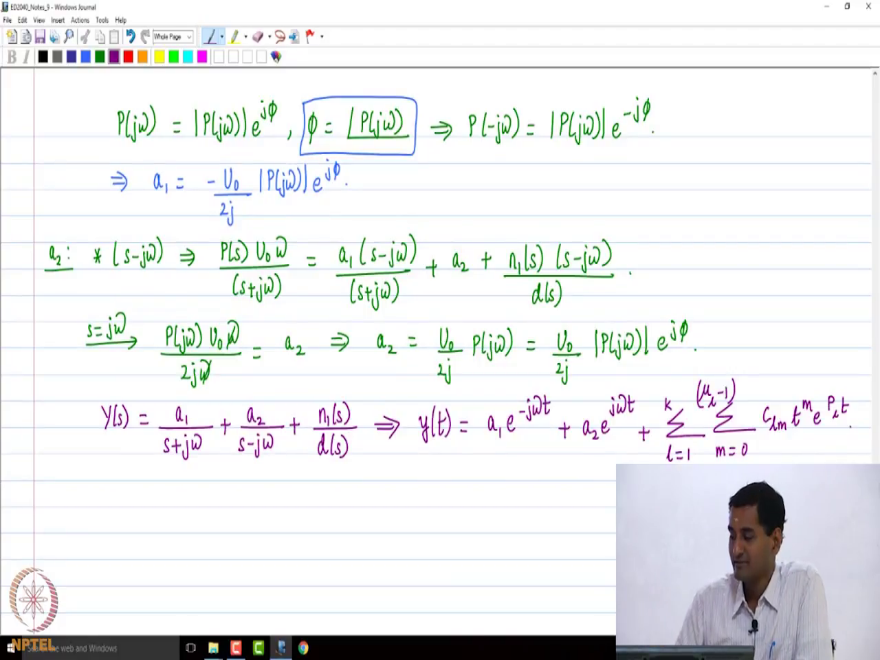 ED2040_Notes_9 - Windows Journal
File Edit View Insert Actions Tools Help
Whole Page
B I
P(jω) = |P(jω)| e^{jϕ}, ϕ = ∠P(jω) ⇒ P(-jω) = |P(jω)| e^{-jϕ}.
⇒ a₁ = -U₀/2j |P(jω)| e^{jϕ}.
a₂: * (s-jω) ⇒ P(s) U₀ ω/(s+jω) = a₁(s-jω)/(s+jω) + a₂ + n₁(s) (s-jω)/d(s).
s=jω → P(jω) U₀ ω/2jω = a₂ ⇒ a₂ = U₀/2j P(jω) = U₀/2j |P(jω)| e^{jϕ}.
Y(s) = a₁/(s+jω) + a₂/(s-jω) + n₁(s)/d(s) ⇒ y(t) = a₁e^{-jωt} + a₂e^{jωt} + Σ_{l=1}^{k} Σ_{m=0}^{(μ_l-1)} C_{lm} t^m e^{P_l t}.
NPTEL
the web and Windows